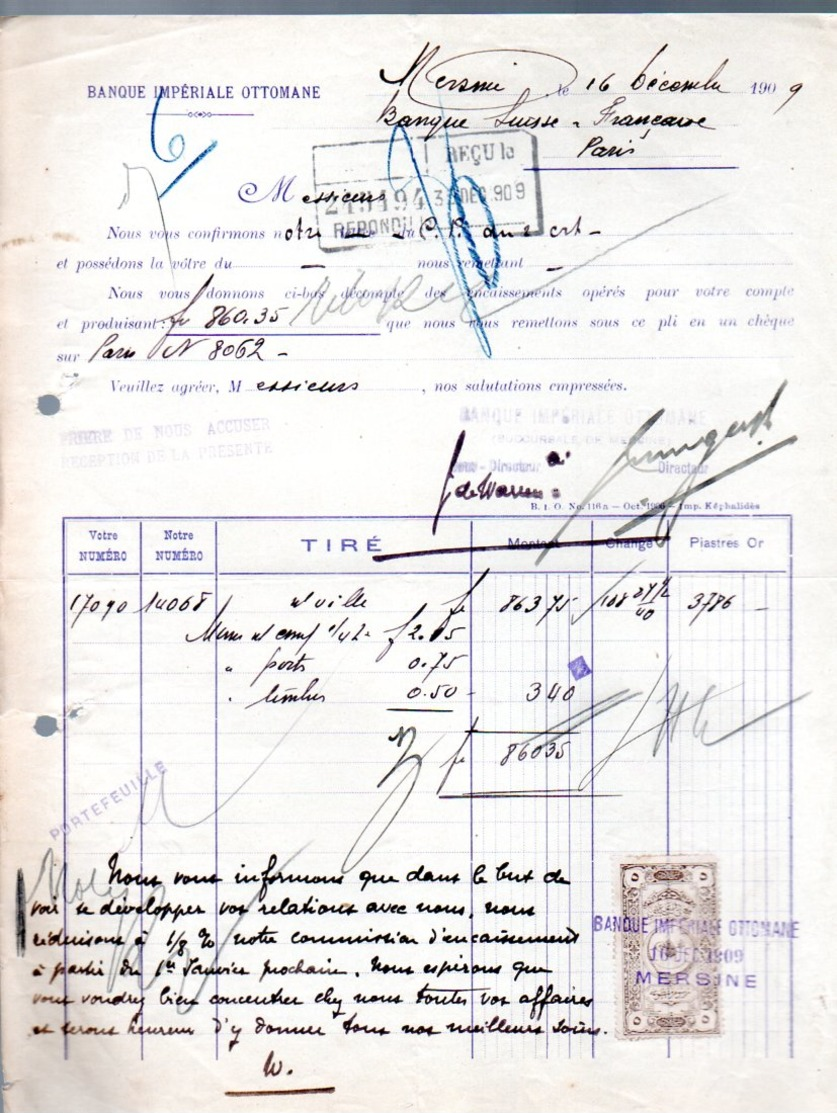 BANQUE IMPÉRIALE OTTOMANE
Mersine, le 16 Décembre 1909
Banque Suisse-Française
Paris
REÇU le
249494 3 DEC. 909
REPONDU
Messieurs
Nous vous confirmons notre — du C. P. du 2 crt —
et possédons la vôtre du — nous remettant —
Nous vous donnons ci-bas décompte des encaissements opérés pour votre compte
et produisant : fr 860.35 que nous vous remettons sous ce pli en un chèque
sur Paris N 8062 —
Veuillez agréer, Messieurs, nos salutations empressées.
PRIERE DE NOUS ACCUSER
RECEPTION DE LA PRÉSENTE
BANQUE IMPÉRIALE OTTOMANE
(SUCCURSALE DE MERSINE)
Sous-Directeur Directeur
de Warren
B. I. O. No. 116a — Oct. 1906 — Imp. Képhalidès
Votre NUMÉRO Notre NUMÉRO TIRÉ Montant Change Piastres Or
17090 14068 s/ville fr 863 75 3786 —
f 2.15
" ports 0.75
" timbres 0.50 - 3 40
fr 860 35
PORTEFEUILLE
Nous vous informons que dans le but de
voir se développer vos relations avec nous, nous
réduisons à 1/8 % notre commission d'encaissement
à partir du 1er Janvier prochain. Nous espérons que
vous voudrez bien concentrer chez nous toutes vos affaires
et serons heureux d'y donner tous nos meilleurs soins.
W.
BANQUE IMPÉRIALE OTTOMANE
16 DEC 1909
MERSINE